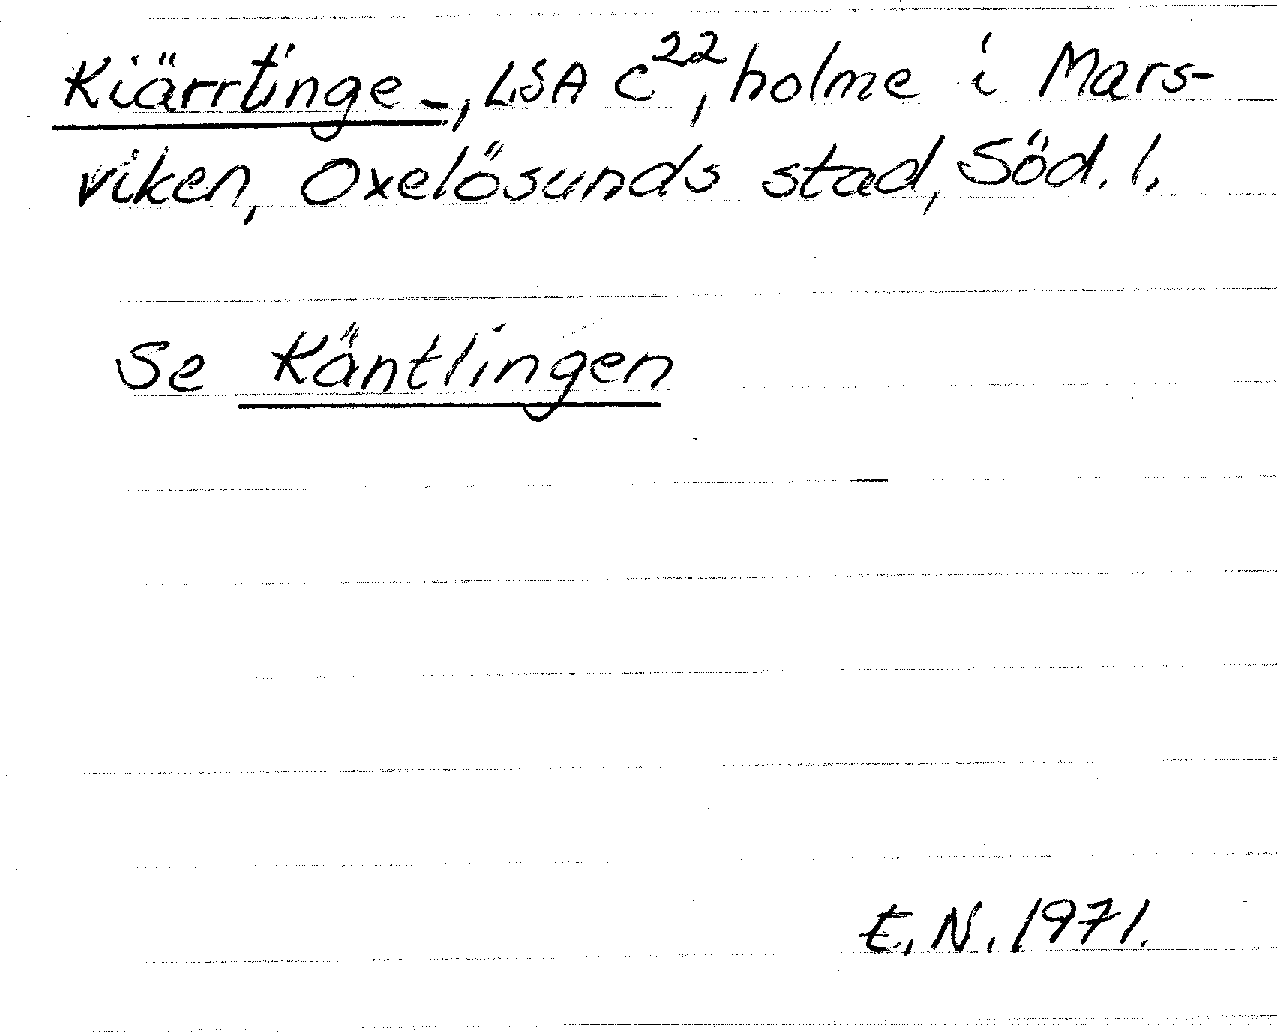 Kiärrtinge-, LSA C²², holme i Mars-
viken, Oxelösunds stad, Söd. l.
Se Käntlingen
E.N. 1971.